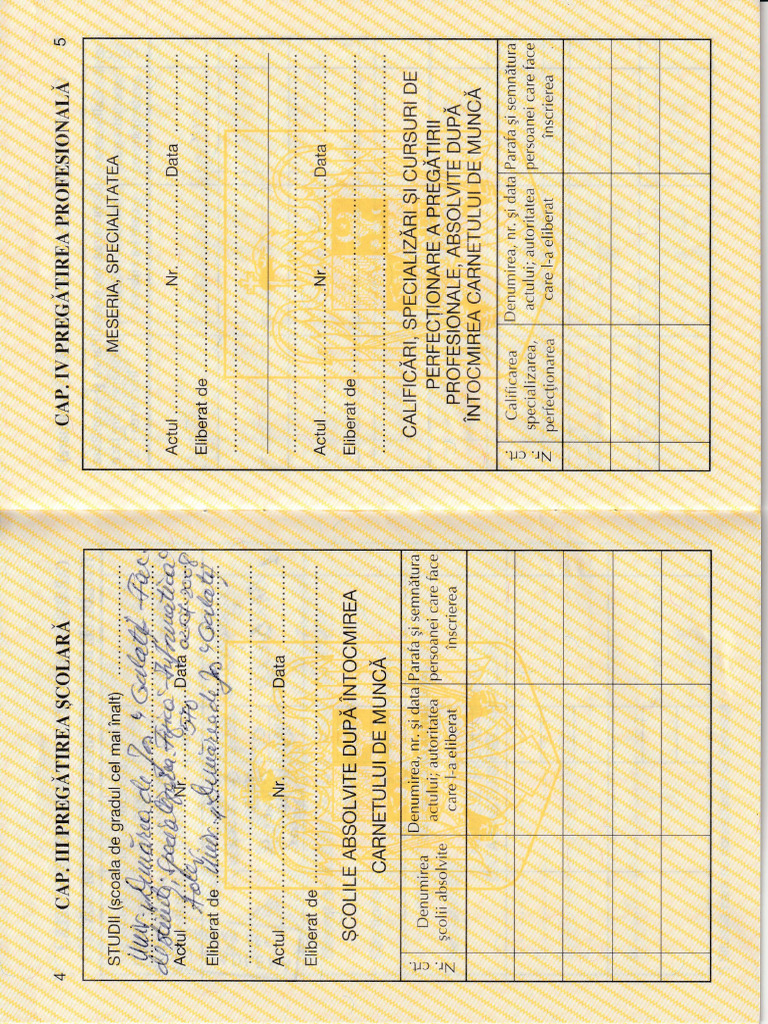 4
CAP. III PREGĂTIREA ȘCOLARĂ
STUDII (școala de gradul cel mai înalt) ....................
Univ. „Dunărea de Jos" Galați Fac.
de Științe, specializarea Informatica
Actul .......... Nr. .......... Data 02.07.2008
Eliberat de Univ. „Dunărea de Jos" Galați
Actul .......... Nr. .......... Data
Eliberat de ..........
ȘCOLILE ABSOLVITE DUPĂ ÎNTOCMIREA
CARNETULUI DE MUNCĂ
Nr. crt.
Denumirea
școlii absolvite
Denumirea, nr. și data
actului; autoritatea
care l-a eliberat
Parafa și semnătura
persoanei care face
înscrierea
CAP. IV PREGĂTIREA PROFESIONALĂ
5
MESERIA, SPECIALITATEA
Actul .......... Nr. .......... Data ..........
Eliberat de ..........
Actul .......... Nr. .......... Data ..........
Eliberat de ..........
CALIFICĂRI, SPECIALIZĂRI ȘI CURSURI DE
PERFECȚIONARE A PREGĂTIRII
PROFESIONALE, ABSOLVITE DUPĂ
ÎNTOCMIREA CARNETULUI DE MUNCĂ
Nr. crt.
Calificarea
specializarea,
perfecționarea
Denumirea, nr. și data
actului; autoritatea
care l-a eliberat
Parafa și semnătura
persoanei care face
înscrierea